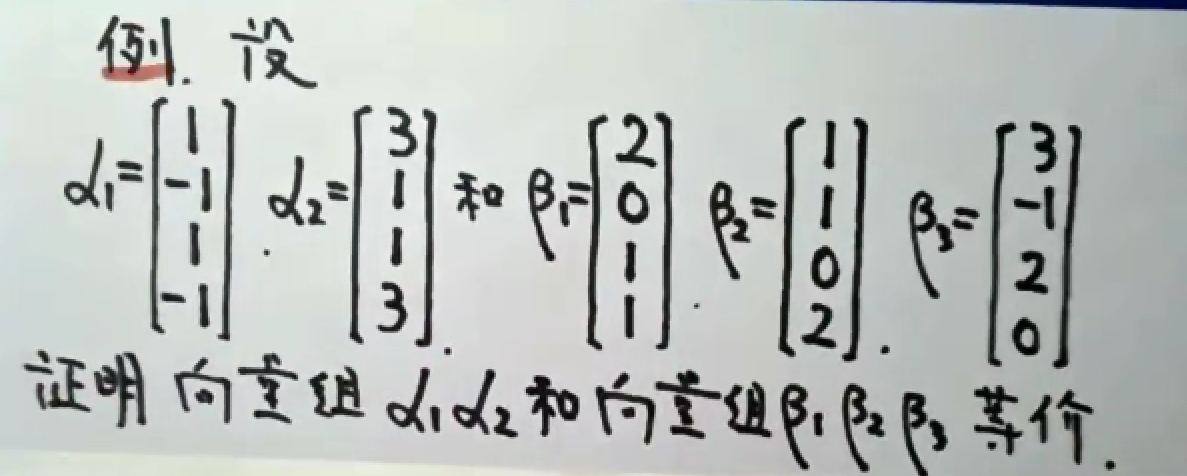 例. 设
α₁=[1 -1 1 -1]. α₂=[3 1 1 3]. 和 β₁=[2 0 1 1]. β₂=[1 1 0 2]. β₃=[3 -1 2 0]
证明 向量组 α₁ α₂ 和 向量组 β₁ β₂ β₃ 等价.